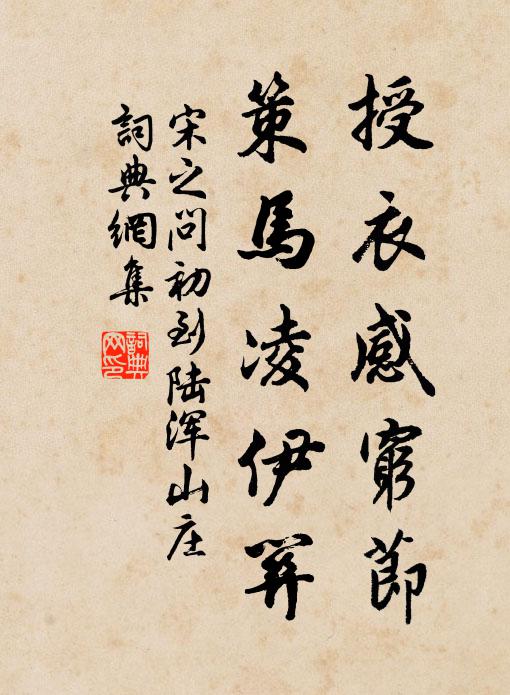 授衣感窮節
策馬凌伊關
宋之問初到陸渾山庄
詞典網集
詞典网印